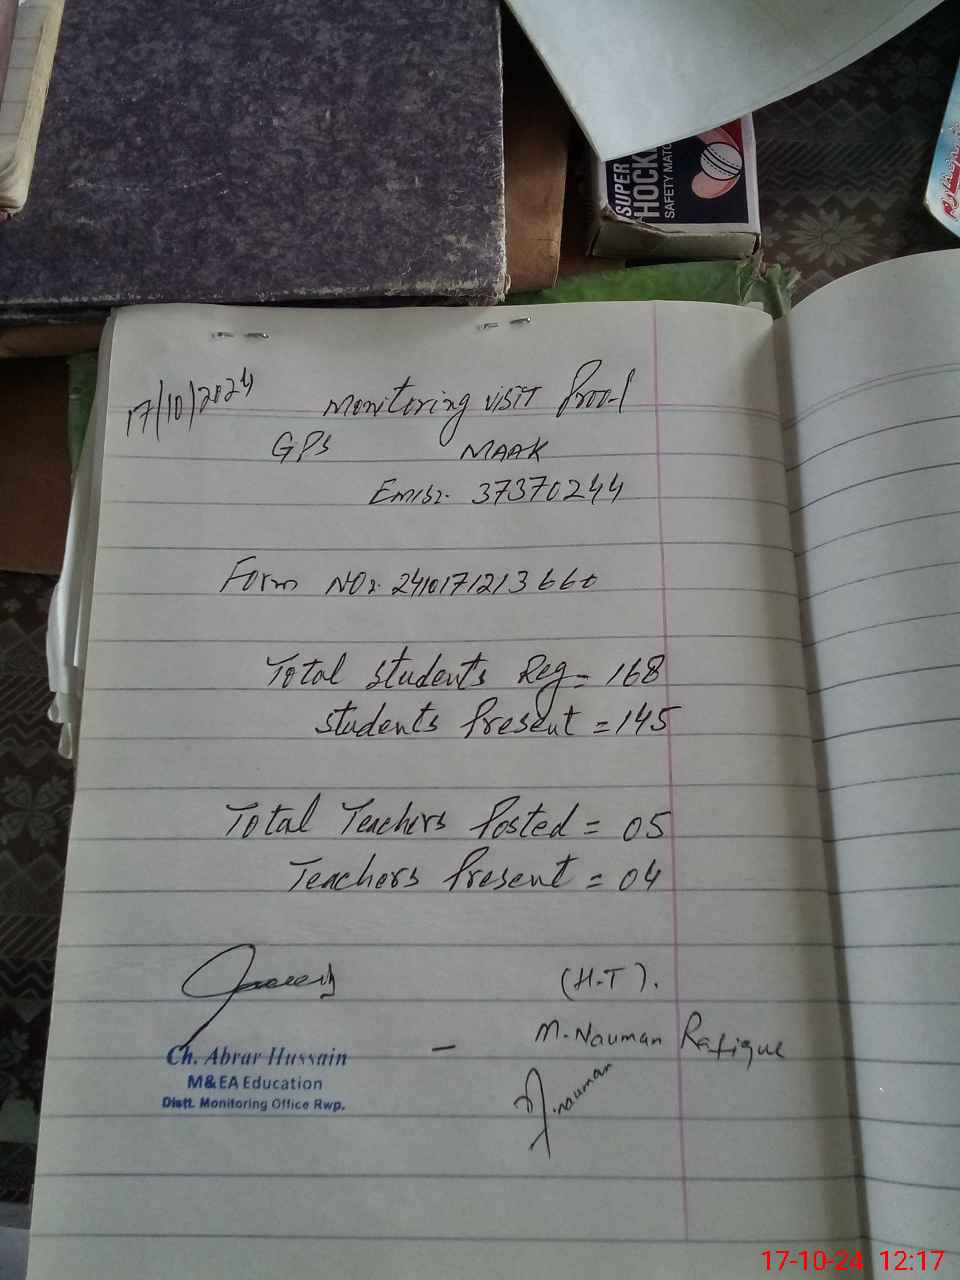 SUPER
HOCK
SAFETY MATC
17/10/2024 Monitoring visit Proof
GPS MAAK
Emis:- 37370244
Form NO:- 2410171213660
Total students Reg = 168
students Present = 145
Total Teachers Posted = 05
Teachers Present = 04
(H.T).
M. Nauman Rafique
M.nauman
Ch. Abrar Hussain
M&EA Education
Distt. Monitoring Office Rwp.
17-10-24 12:17